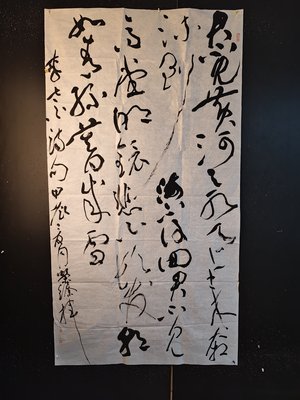 君不見黃河之水天上來奔
流到海不復回君不見
高堂明鏡悲白髮朝
如青絲暮成雪
李白詩句甲辰